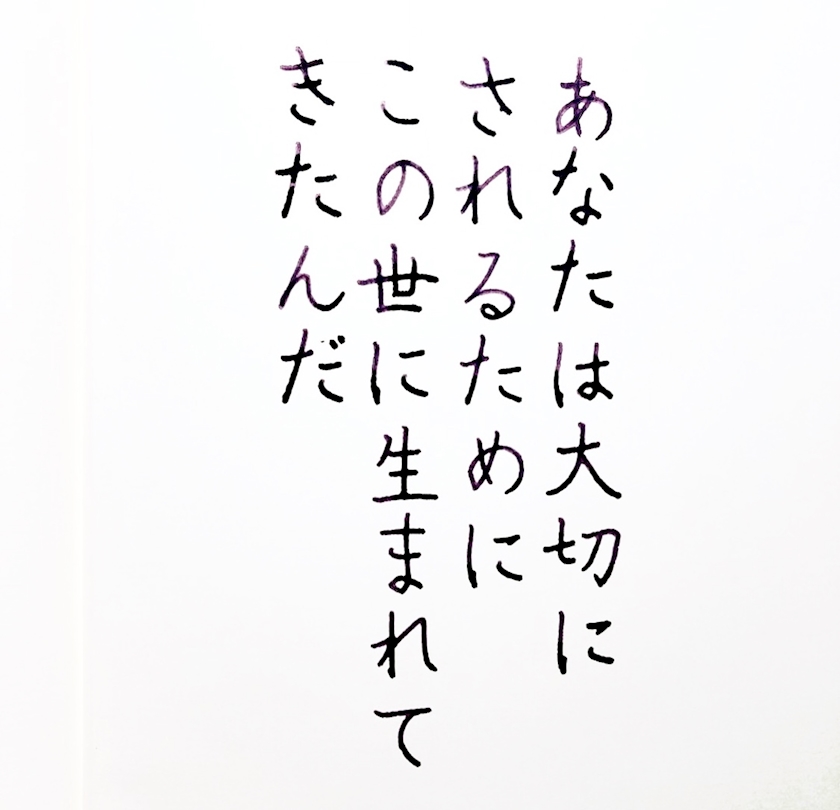 あなたは大切に
されるために
この世に生まれて
きたんだ